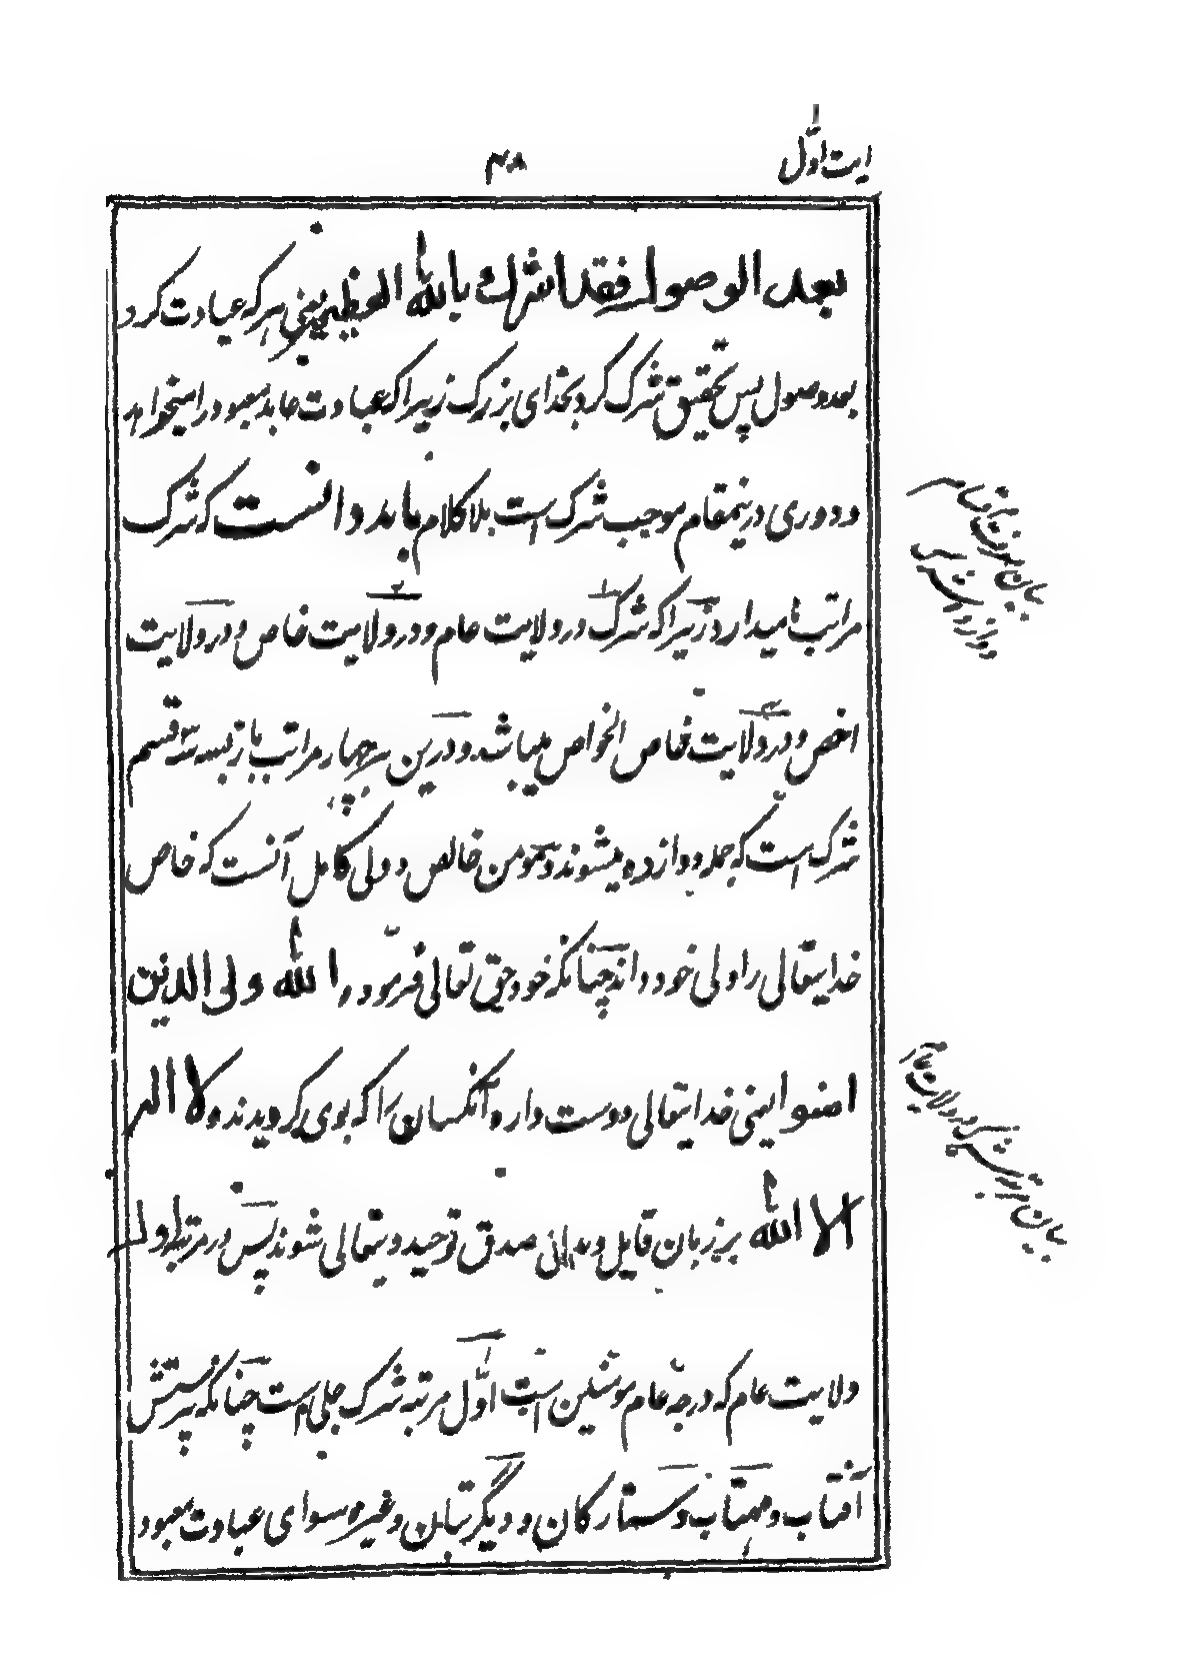 ایت اول
۴۸
بعد الوصول فقد اشرک بالله العظیم یعنی هر که عبادت کرد
بعد وصول پس تحقیق شرک کرد بخدای بزرگ زیرا که عبادت عابد معبود را میخواهد
و دوری درینمقام موجب شرک است بلا کلام باید دانست که شرک
مراتبها میدارد زیرا که شرک در ولایت عام و در ولایت خاص و در ولایت
اخص و در ولایت خاص الخواص میباشد و درین هر چهار مراتب باز بسه سه قسم
شرک است که جمله دوازده میشوند و مومن خالص و ولی کامل آنست که خاص
خدایتعالی را ولی خود داند چنانکه خود حق تعالی فرمود الله ولی الذین
امنوا یعنی خدایتعالی دوست دارد آنکسان را که بوی گرویدند و لا اله
الا الله بر زبان قایل و بدل صدق توحید ویتعالی شوند پس در مرتبه اول
ولایت عام که درجه عام مومنین است اول مرتبه شرک جلی است چنانکه پرستش
آفتاب و مهتاب و ستارگان و دیگر بتان و غیر ماسوای عبادت معبود
بیان معرفت اقسام
دوازده شرک
بیان مرتبه شرک در ولایت عام